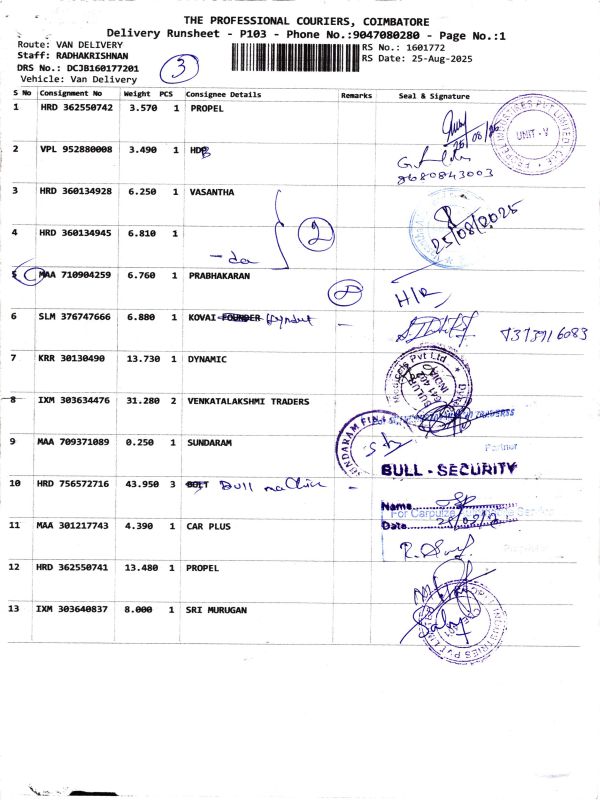 THE PROFESSIONAL COURIERS, COIMBATORE
Delivery Runsheet - P103 - Phone No.:9047080280 - Page No.:1
Route: VAN DELIVERY
Staff: RADHAKRISHNAN
DRS No.: DCJB160177201
Vehicle: Van Delivery
3
RS No.: 1601772
RS Date: 25-Aug-2025
S No Consignment No Weight PCS Consignee Details Remarks Seal & Signature
1 HRD 362550742 3.570 1 PROPEL
UNIT - V
2 VPL 952880008 3.490 1
8680843003
3 HRD 360134928 6.250 1 VASANTHA
25/08/2025
4 HRD 360134945 6.810 1
2
- do
5 MAA 710904259 6.760 1 PRABHAKARAN
H/R
6 SLM 376747666 6.880 1 KOVAI FOUNDER -
7373916083
7 KRR 30130490 13.730 1 DYNAMIC
8 IXM 303634476 31.280 2 VENKATALAKSHMI TRADERS
Partner
9 MAA 709371089 0.250 1 SUNDARAM
SUNDARAM FIN
BULL - SECURITY
10 HRD 756572716 43.950 3 BOLT Bull machine -
Name
For Carpulze
Date
11 MAA 301217743 4.390 1 CAR PLUS
12 HRD 362550741 13.480 1 PROPEL
13 IXM 303640837 8.000 1 SRI MURUGAN